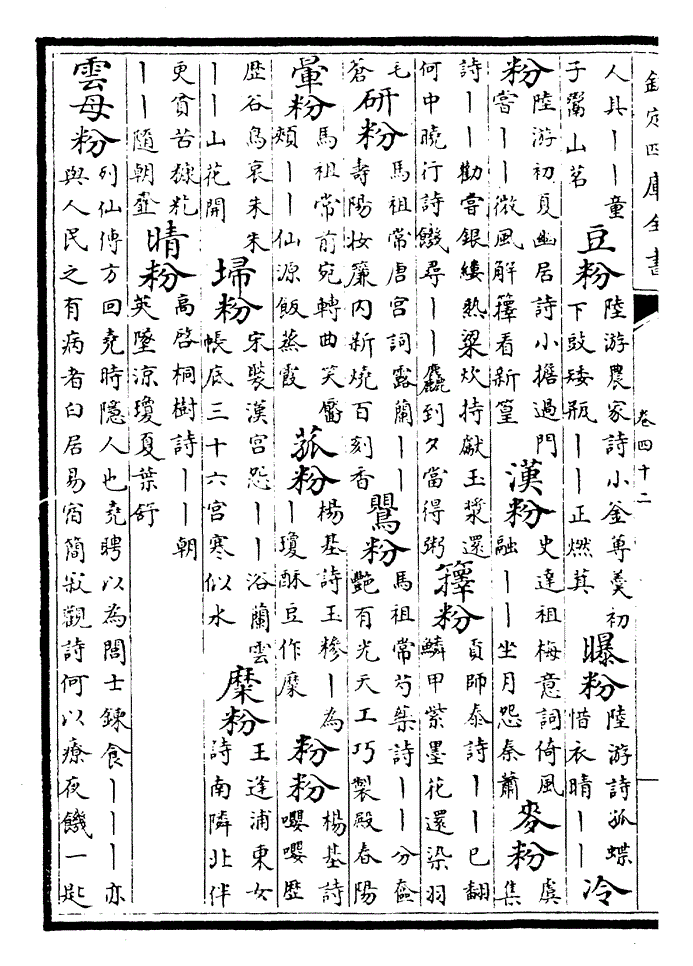 欽定四庫全書 卷四十二
人具〡〡童
子鬻山茗
豆粉
陸游農家詩小釜蓴羮初
下豉矮瓶〡〡正燃萁
曝粉
陸游詩孤蝶
惜衣晴〡〡
冷
粉
陸游初夏幽居詩小擔過門
嘗〡〡微風解籜看新篁
漢粉
史達祖梅意詞倚風
融〡〡坐月怨秦蕭
麥粉
虞
集
詩〡〡勸嘗銀縷熟粱炊持獻玉漿還
何中曉行詩饑尋〡〡麤到夕當得粥
籜粉
貢師泰詩〡〡已翻
鱗甲紫墨花還染羽
毛
蒼
研粉
馬祖常唐宮詞露蘭〡〡
壽陽妝簾内新燒百刻香
鸎粉
馬祖常芍藥詩〡〡分奩
艷有光天工巧製殿春陽
暈粉
馬祖常前宛轉曲笑靨
頰〡〡仙源飯蒸霞
菰粉
楊基詩玉糝〡為
〡瓊酥豆作糜
粉粉
楊基詩
嚶嚶歴
歴谷鳥哀朱朱
〡〡山花開
埽粉
宋褧漢宮怨〡〡浴蘭雲
帳底三十六宮寒似水
糜粉
王逢浦東女
詩南隣北伴
更貧苦糠籺
〡〡隨朝虀
晴粉
高啓桐樹詩〡〡朝
英墜涼瓊夏葉舒
雲母粉
列仙傳方回堯時隱人也堯聘以為閭士鍊食〡〡〡亦
與人民之有病者白居易宿簡寂觀詩何以療夜饑一匙